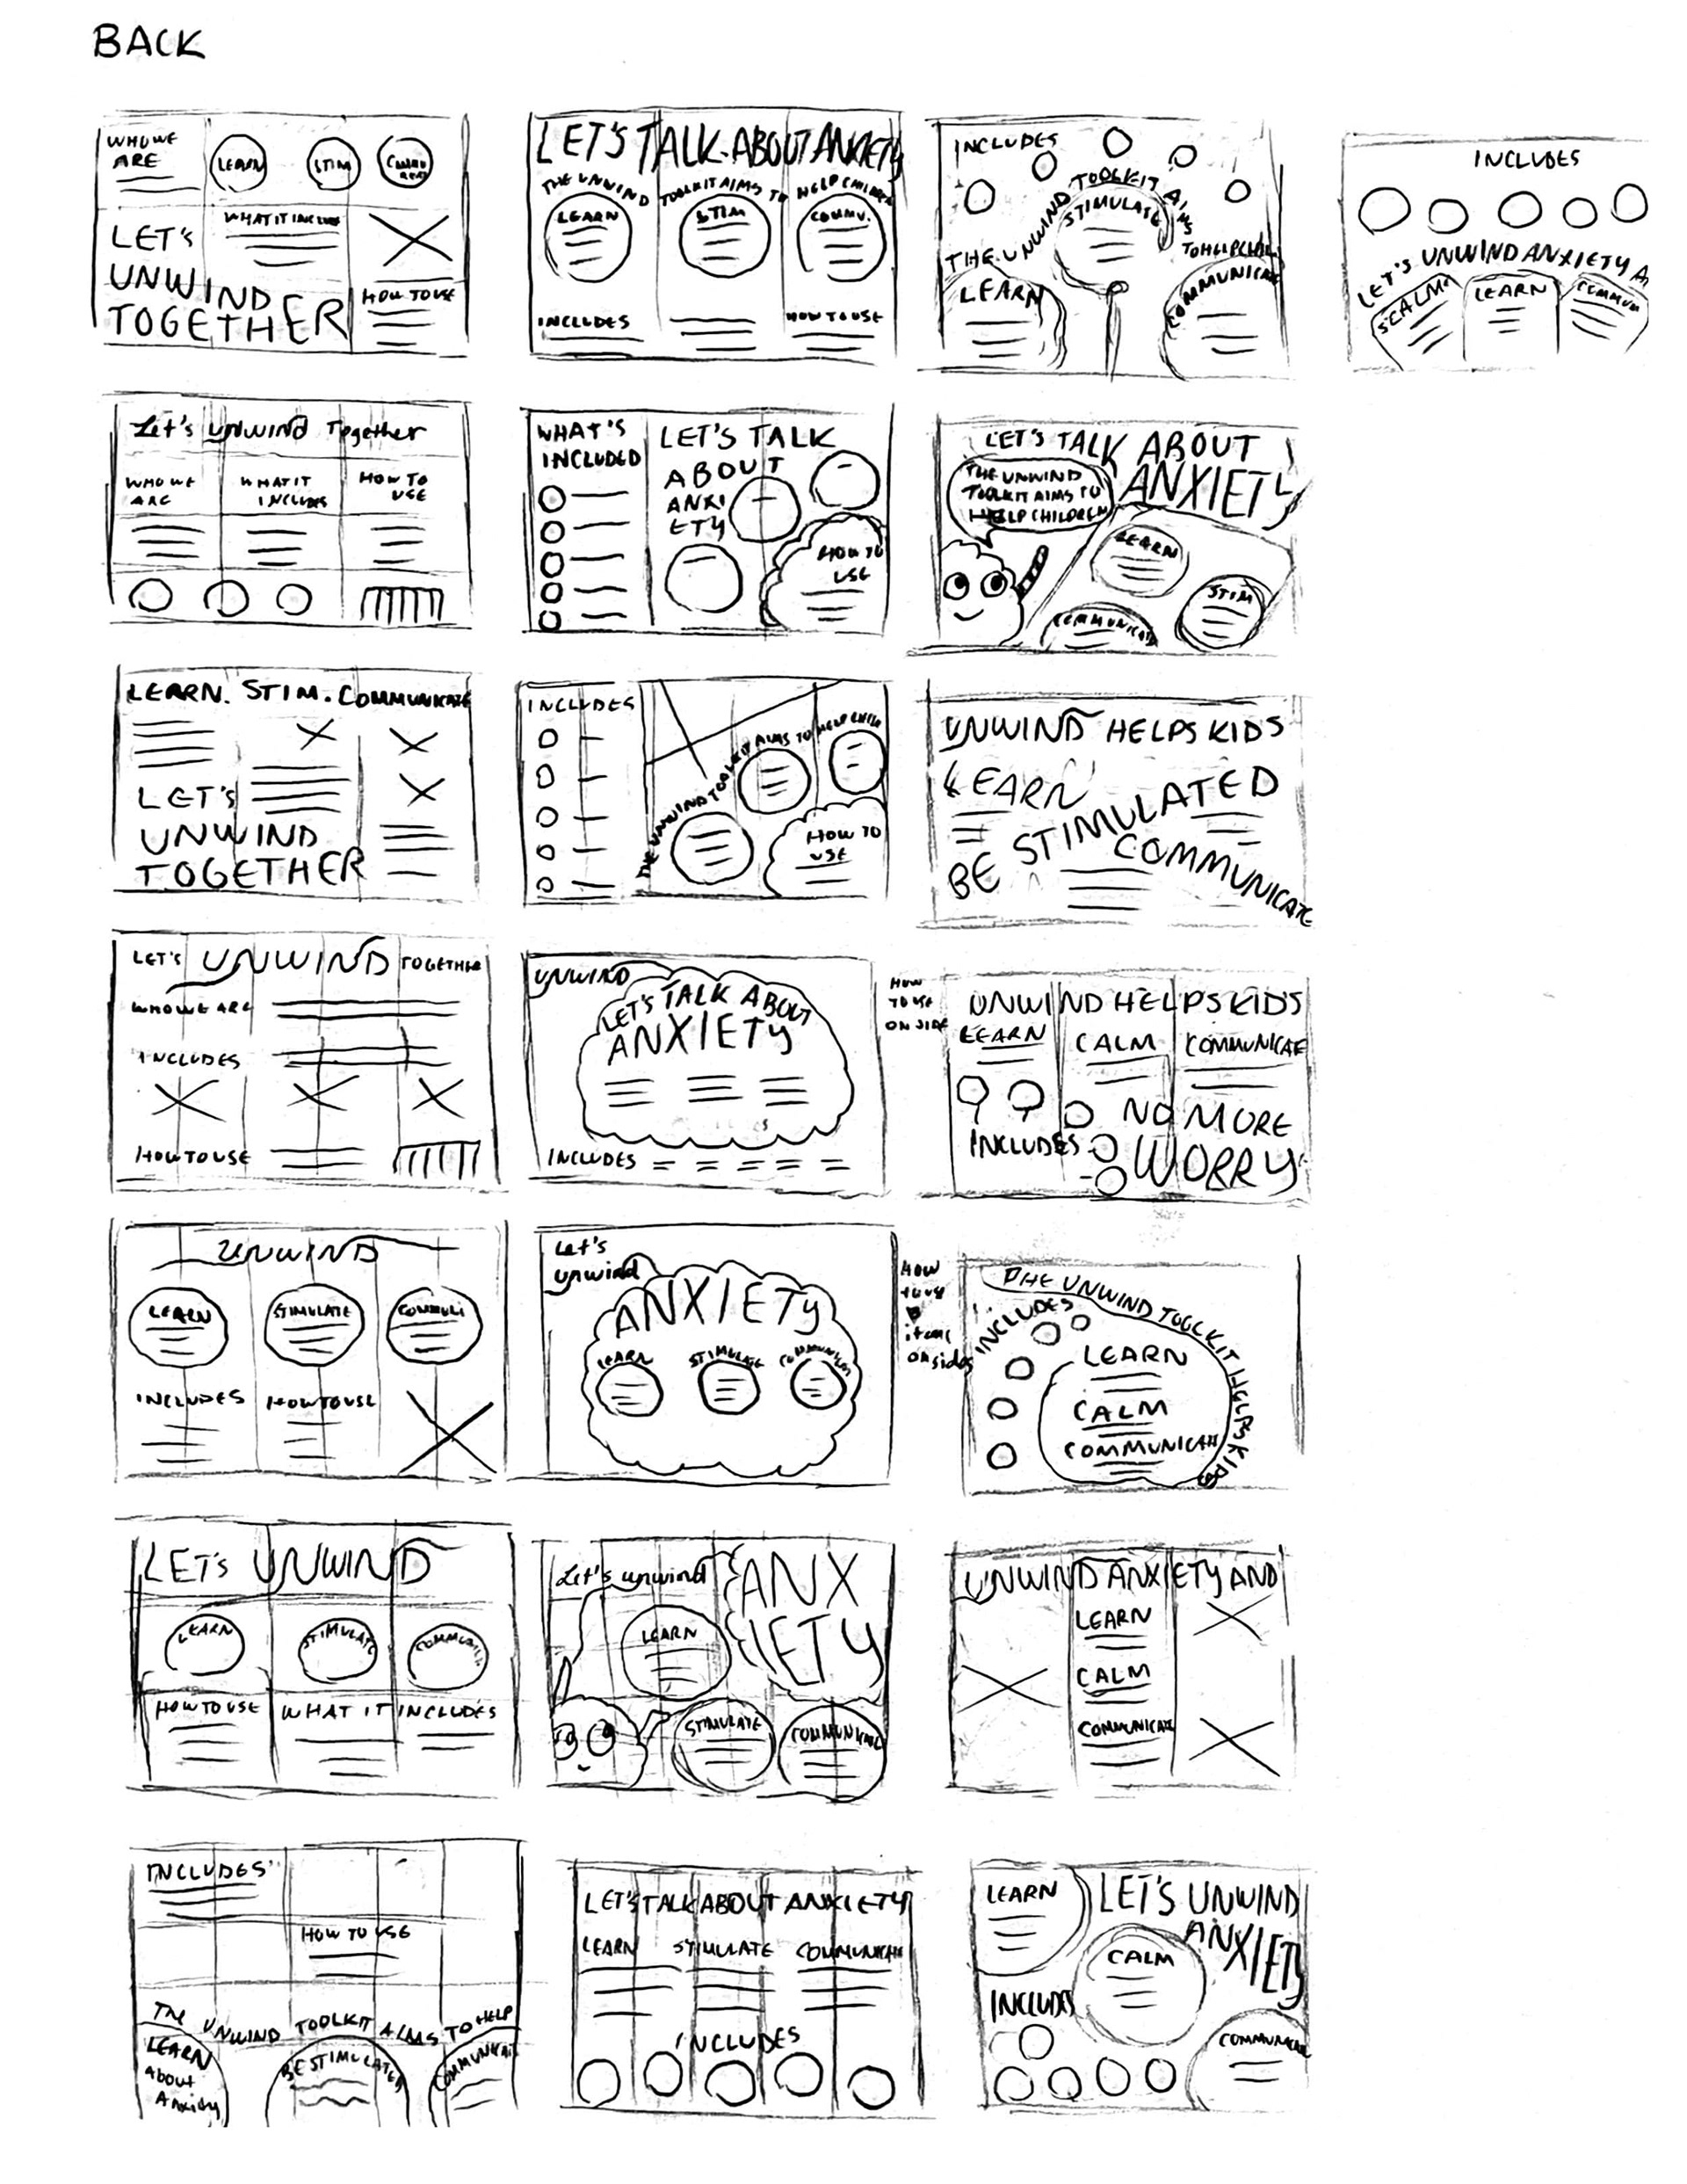 BACK
WHO WE
ARE
LEARN
STIM
WHAT IT INCLUDES
LET'S
UNWIND
TOGETHER
HOW TO USE
LET'S TALK ABOUT ANXIETY
THE UNWIND TOOLKIT AIMS TO HELP CHILDREN
LEARN
STIM
COMMU.
INCLUDES
HOW TO USE
INCLUDES
THE UNWIND TOOLKIT AIMS
TO HELP CHIL
STIMULATE
LEARN
COMMUNICATE
INCLUDES
LET'S UNWIND ANXIETY A
CALM
LEARN
COMMUN
Let's unwind Together
WHO WE
ARE
WHAT IT
INCLUDES
HOW TO
USE
WHAT'S
INCLUDED
LET'S TALK
ABOUT
ANXI
ETY
HOW TO
USE
LET'S TALK ABOUT
ANXIETY
THE UNWIND
TOOLKIT AIMS TO
HELP CHILDREN
LEARN
STIM
COMMUNICATE
LEARN. STIM. COMMUNICATE
LET'S
UNWIND
TOGETHER
INCLUDES
THE UNWIND TOOLKIT AIMS TO HELP CHILD
HOW TO
USE
UNWIND HELPS KIDS
LEARN
BE STIMULATED
COMMUNICATE
LET'S UNWIND TOGETHER
WHO WE ARE
INCLUDES
HOW TO USE
UNWIND
LET'S TALK ABOUT
ANXIETY
INCLUDES
HOW
TO USE
ON SIDE
UNWIND HELPS KIDS
LEARN
CALM
COMMUNICATE
INCLUDES
NO MORE
WORRY
UNWIND
LEARN
STIMULATE
COMMUNI
INCLUDES
HOW TO USE
Let's
unwind
ANXIETY
LEARN
STIMULATE
COMMUNICATE
HOW
to use
items
on sides
THE UNWIND TOOLKIT HELPS KIDS
INCLUDES
LEARN
CALM
COMMUNICATE
LET'S UNWIND
LEARN
STIMULATE
COMMUNICATE
HOW TO USE
WHAT IT INCLUDES
Let's unwind
ANX
IETY
LEARN
STIMULATE
COMMUNICATE
UNWIND ANXIETY AND
LEARN
CALM
COMMUNICATE
INCLUDES
HOW TO USE
THE UNWIND TOOLKIT AIMS TO HELP
LEARN
About
Anxiety
BE STIMULATED
COMMUNICATE
LET'S TALK ABOUT ANXIETY
LEARN
STIMULATE
COMMUNICATE
INCLUDES
LEARN
LET'S UNWIND
ANXIETY
CALM
INCLUDES
COMMUNICATE